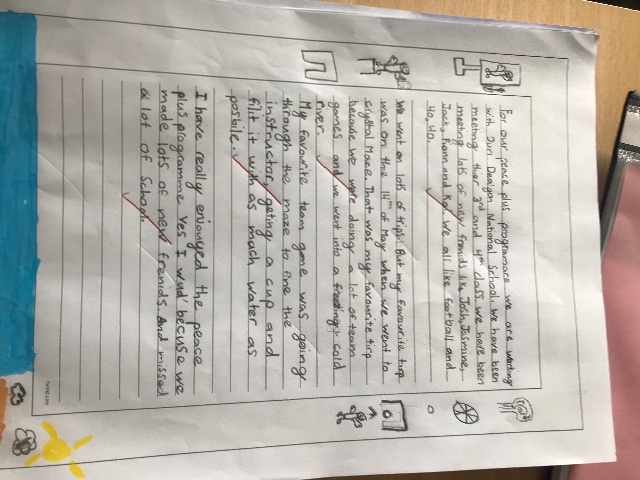 For our peace plus programace we are working
with Dun Dealgan National School. We have been
meeting ther 3rd and 4th class. We have been
meeting lots of new freinds like Josh, Jasmine,
Jack, Fionn and Kai. We all like football and
Yo, Yo.
We went on lots of trips. But my favourite tirp
was on the 14th of May when we went to
crystal Maze. That was my favourite tirp
because we were doing a lot of team
games and we went into a freezing cold
river.
My favourite team game was going
through the maze to fine the
instructor, geting a cup and
filit it with as much water as
posbile.
I have really enjoyed the peace
plus programme yes I wud becuse we
made lots of new freinds. And missed
a lot of school.
twinkl.com